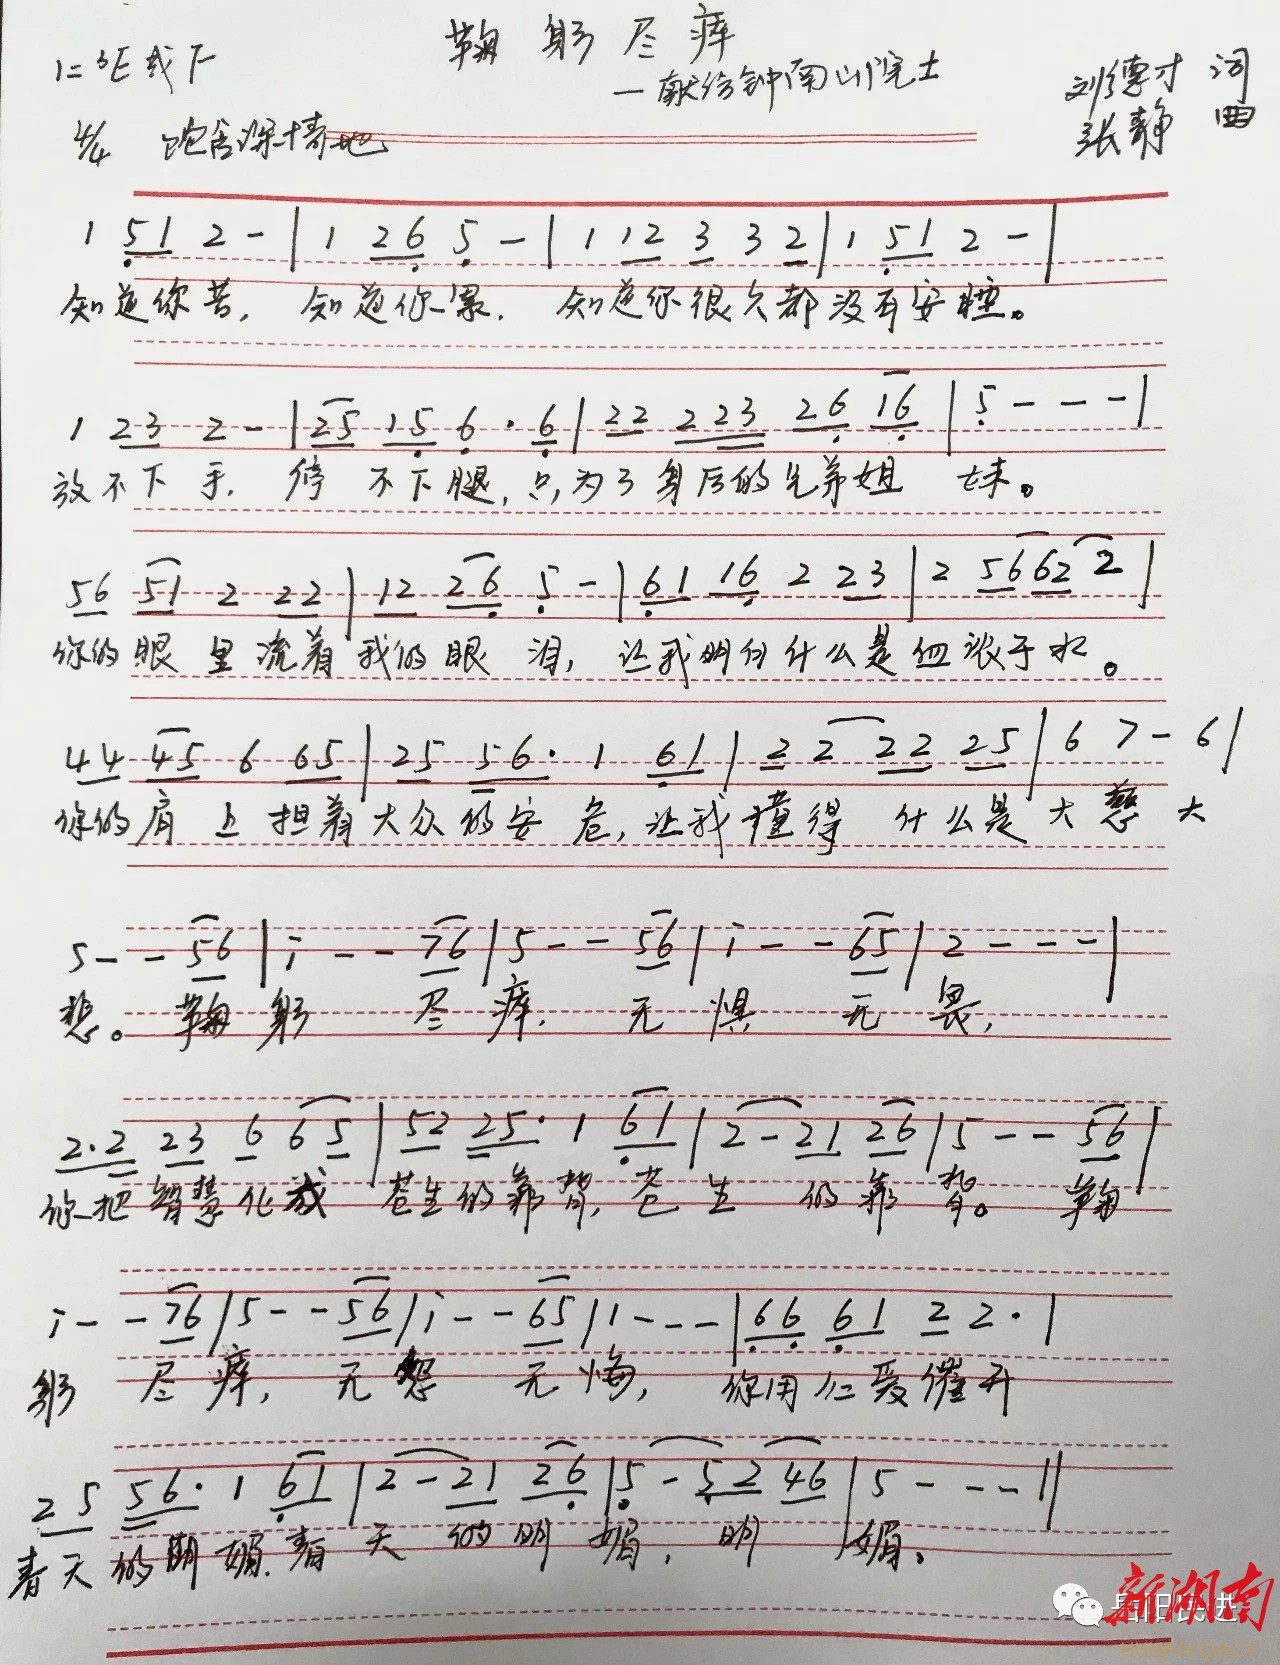 鞠躬尽瘁
1=ᵇE或F
—献给钟南山院士
刘德才 词
4/4 饱含深情地
张静 曲
1 51 2 - | 1 26 5 - | 1 12 3 3 2 | 1 51 2 - |
知道你苦, 知道你累, 知道你很久都没有安睡。
1 23 2 - | 25 15 6 · 6 | 22 223 26 16 | 5 - - - |
放不下手, 停不下腿, 只为了身后的兄弟姐妹。
56 51 2 22 | 12 26 5 - | 61 16 2 23 | 2 56 62 2 |
你的眼里流着我的眼泪, 让我明白什么是血浓于水。
44 45 6 65 | 25 56· 1 61 | 2 2 22 25 | 6 7 - 6 |
你的肩上担着大众的安危, 让我懂得什么是大慈大
5 - - 56 | i - - 76 | 5 - - 56 | i - - 65 | 2 - - - |
悲。鞠躬 尽瘁, 无惧 无畏,
2·2 23 6 6 5 | 52 25· 1 61 | 2 - 21 26 | 5 - - 56 |
你把智慧化成 苍生的靠背, 苍生 的靠背。 鞠
i - - 76 | 5 - - 56 | i - - 65 | 1 - - - | 66 61 2 2· |
躬 尽瘁, 无怨 无悔, 你用仁爱催开
25 56· 1 61 | 2 - 21 26 | 5 - 52 46 | 5 - - - ||
春天的明媚, 春天 的明媚, 明 媚。
岳阳民进
新湖南